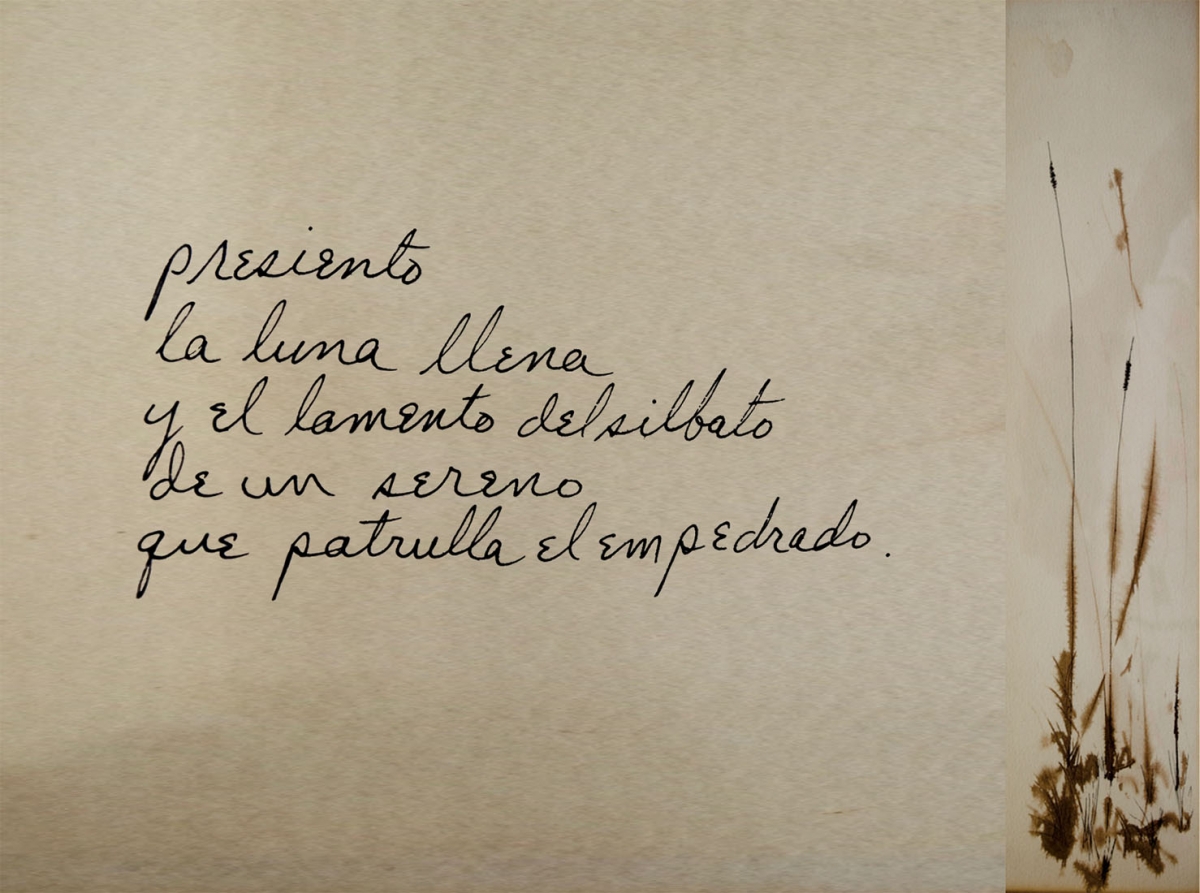 presiento
la luna llena
y el lamento del silbato
de un sereno
que patrulla el empedrado.